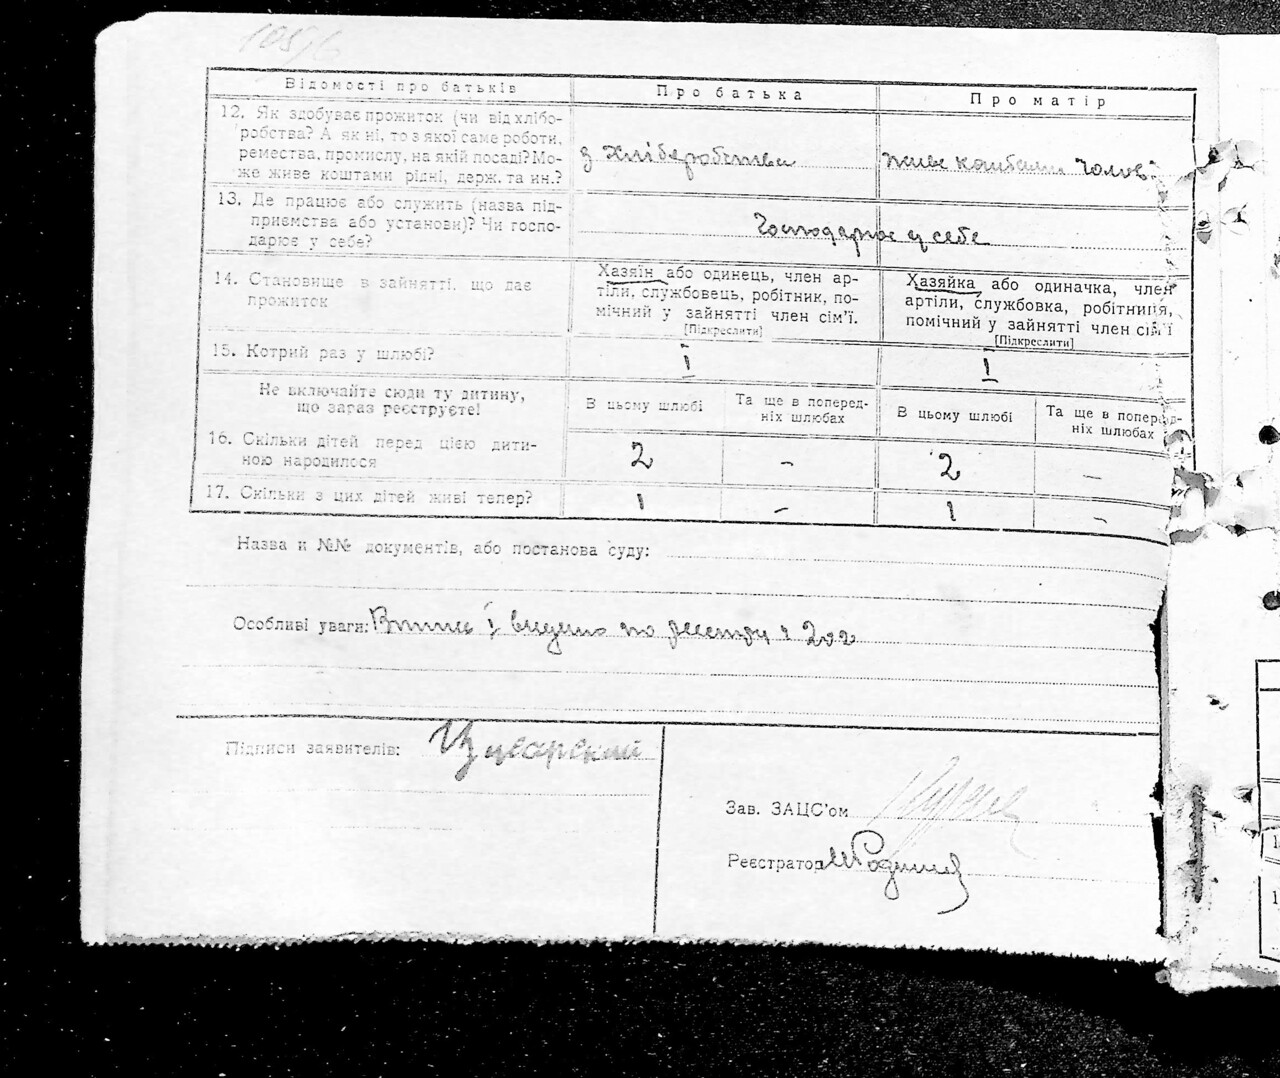 Відомості про батьків
Про батька
Про матір
12. Як здобуває прожиток (чи від хлібо-
робства? А як ні, то з якої саме роботи,
ремества, промислу, на якій посаді? Мо-
же живе коштами рідні, держ. та ин.?
з хліборобства
живе коштами чолов
13. Де працює або служить (назва під-
приємства або установи)? Чи госпо-
дарює у себе?
Господарює у себе
14. Становище в зайнятті, що дає
прожиток
Хазяїн або одинець, член ар-
тіли, службовець, робітник, по-
мічний у зайнятті член сім'ї.
[Підкреслити]
Хазяйка або одиначка, член
артіли, службовка, робітниця,
помічний у зайнятті член сім'ї
[Підкреслити]
15. Котрий раз у шлюбі?
І
І
Не включайте сюди ту дитину,
що зараз реєструєте!
В цьому шлюбі
Та ще в поперед-
ніх шлюбах
В цьому шлюбі
Та ще в поперед-
ніх шлюбах
16. Скільки дітей перед цією дити-
ною народилося
2
-
2
-
17. Скільки з цих дітей живі тепер?
1
-
1
-
Назва и №№ документів, або постанова суду:
Особливі уваги: видано по реєстру
Підписи заявителів:
Зав. ЗАЦС'ом
Реєстратор